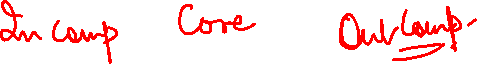 In comp Core Out Comp.